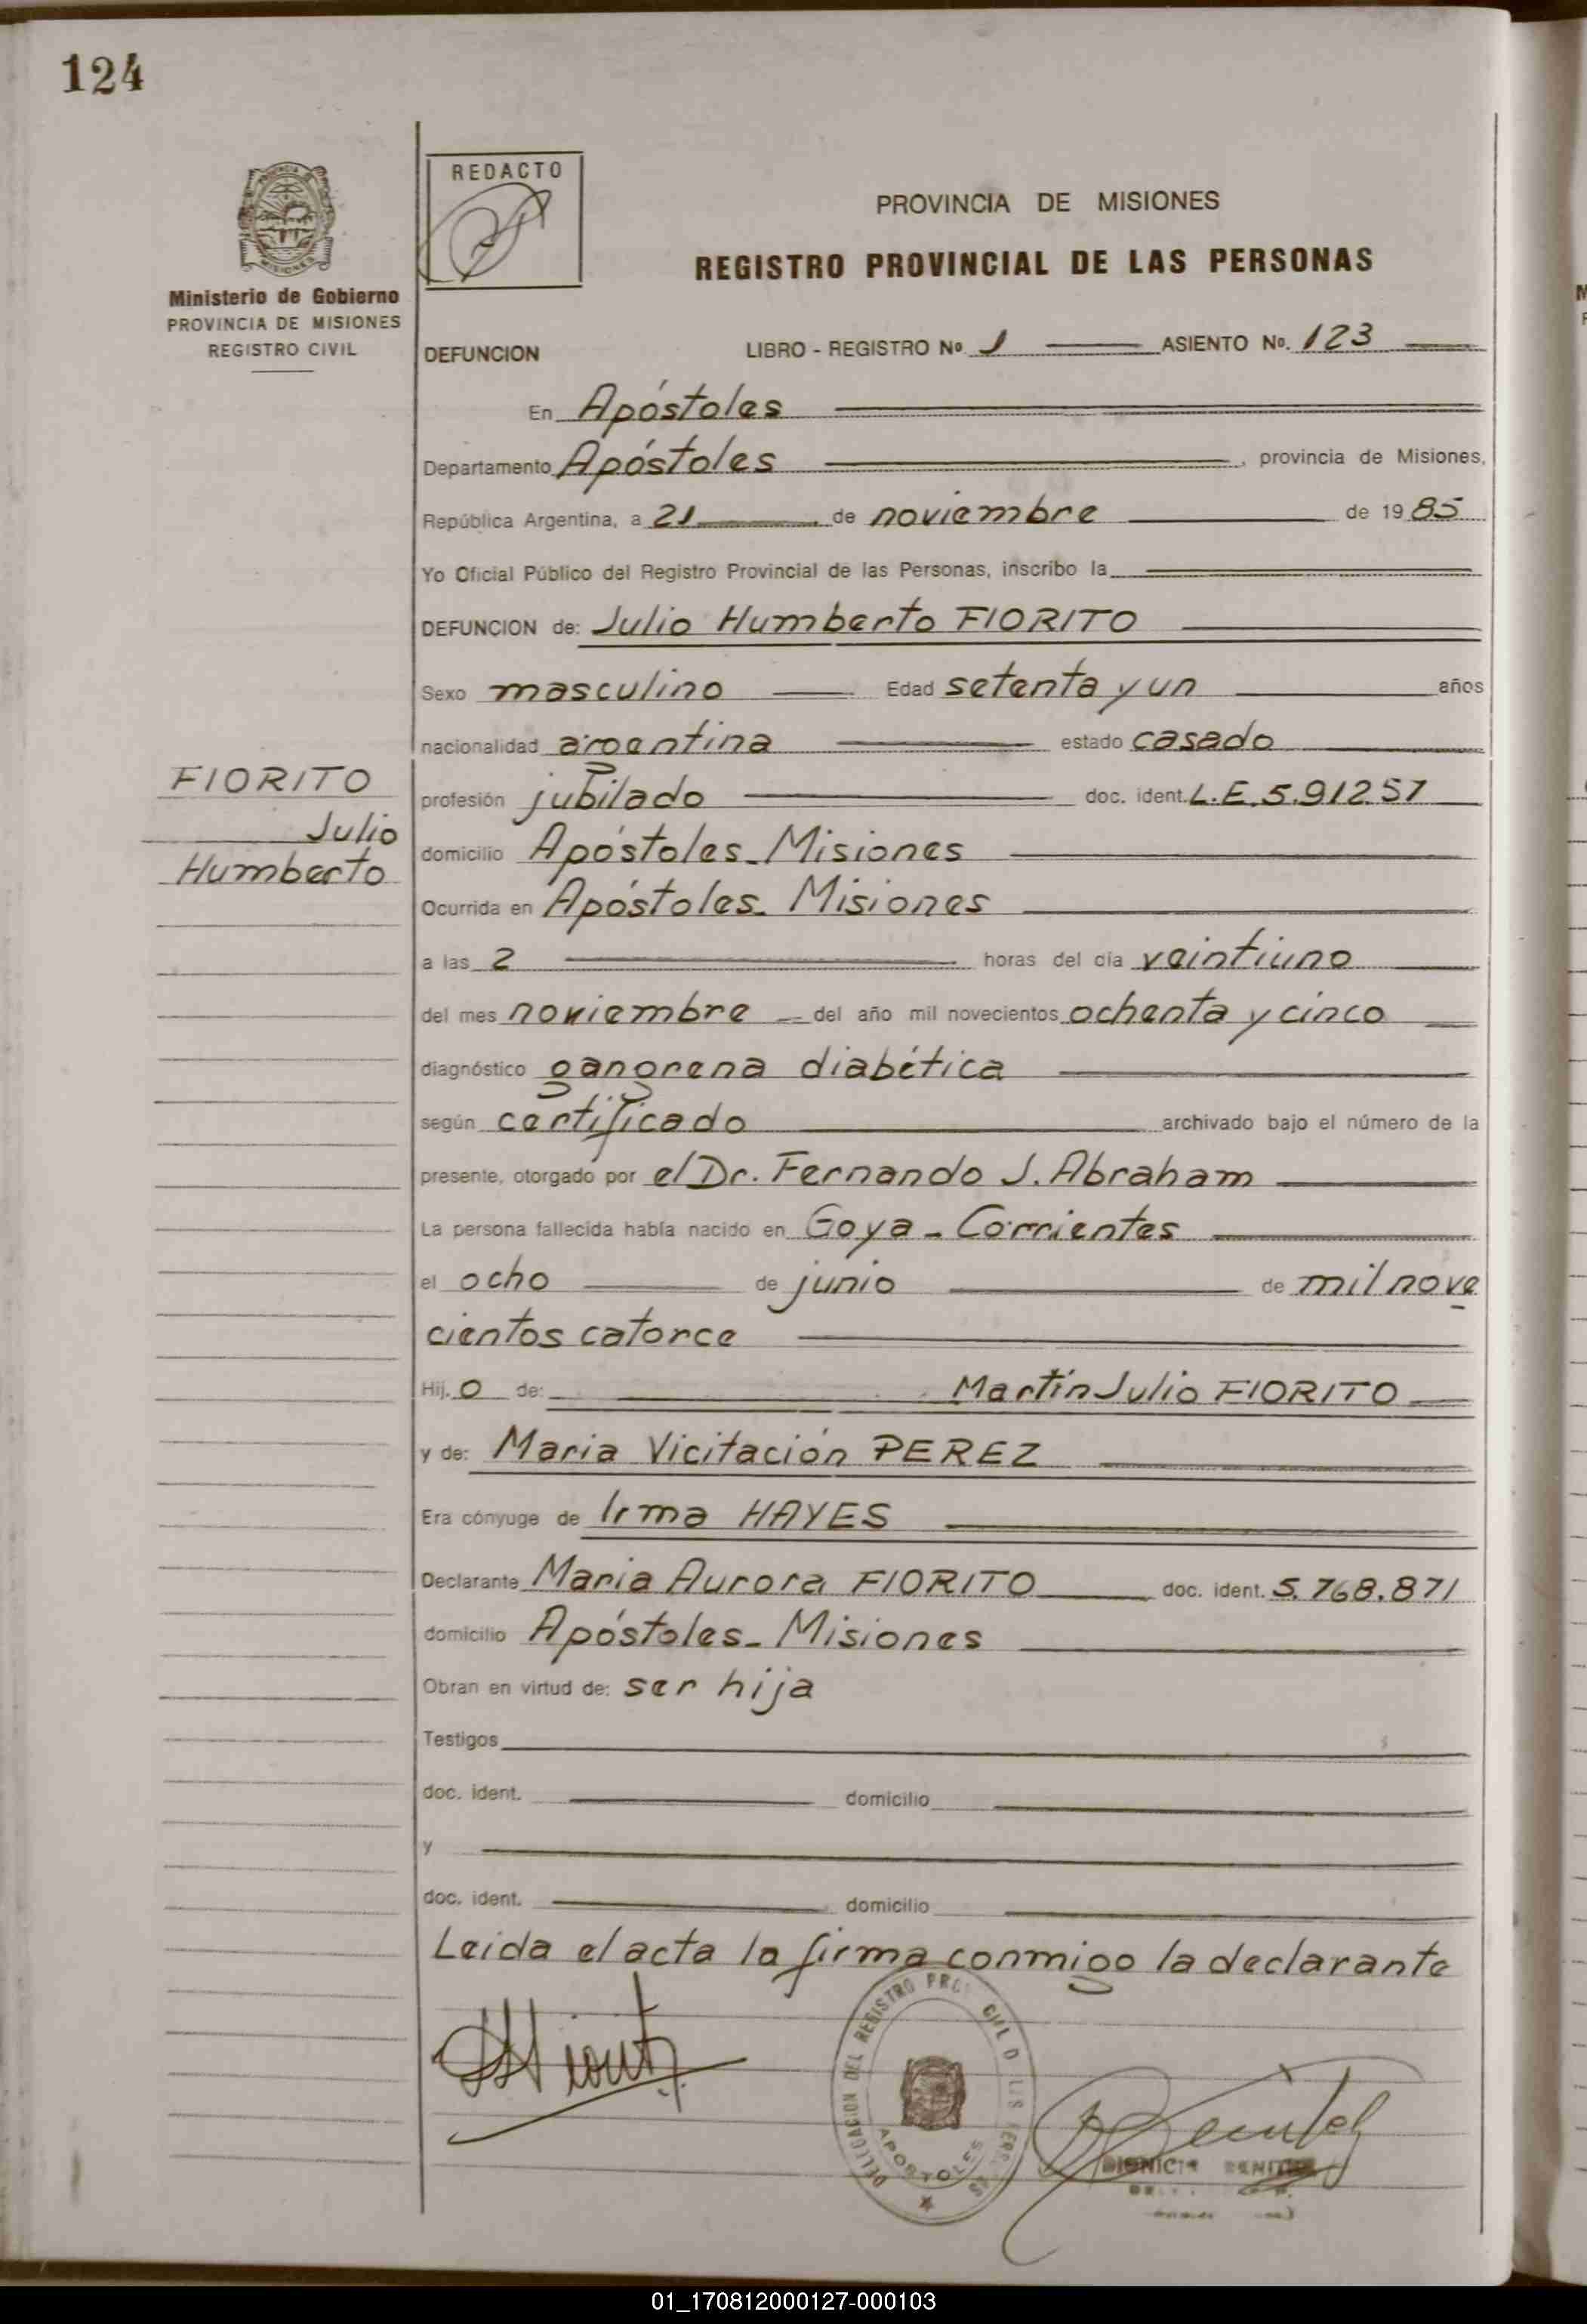 124
REDACTO
PROVINCIA DE MISIONES
REGISTRO PROVINCIAL DE LAS PERSONAS
Ministerio de Gobierno
PROVINCIA DE MISIONES
REGISTRO CIVIL
DEFUNCION LIBRO - REGISTRO Nº 1 ASIENTO Nº. 123
En Apóstoles
Departamento Apóstoles, provincia de Misiones,
República Argentina, a 21 de noviembre de 1985
Yo Oficial Público del Registro Provincial de las Personas, inscribo la
DEFUNCION de: Julio Humberto FIORITO
Sexo masculino Edad setenta y un años
nacionalidad argentina estado casado
FIORITO
Julio
Humberto
profesión jubilado doc. ident. L.E. 5.912.51
domicilio Apóstoles - Misiones
Ocurrida en Apóstoles - Misiones
a las 2 horas del día veintiuno
del mes noviembre del año mil novecientos ochenta y cinco
diagnóstico gangrena diabética
según certificado archivado bajo el número de la
presente, otorgado por el Dr. Fernando J. Abraham
La persona fallecida había nacido en Goya - Corrientes
el ocho de junio de mil nove
cientos catorce
Hij.o de: Martín Julio FIORITO
y de: Maria Vicitación PEREZ
Era cónyuge de Irma HAYES
Declarante Maria Aurora FIORITO doc. ident. 5.768.871
domicilio Apóstoles - Misiones
Obran en virtud de: ser hija
Testigos
doc. ident. domicilio
y
doc. ident. domicilio
Leida el acta la firma conmigo la declarante
DELEGACION DEL REGISTRO
APOSTOLES
01_170812000127-000103